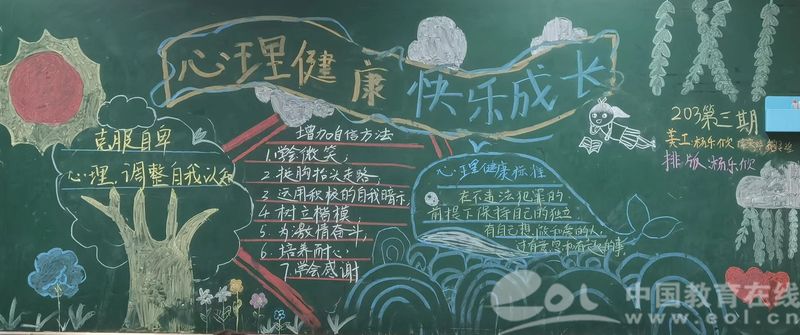 心理健康 快乐成长
克服自卑
心理、调整自我认知
增加自信方法
1.学会微笑;
2.挺胸抬头走路,
3.运用积极的自我暗示,
4.树立楷模,
5.为激情奋斗,
6.培养耐心
7.学会感谢
心理健康标准
在不违法犯罪的
前提下保持自己的独立,
有自己想做和爱的人,
203第三期
美工:杨乐欣
排版:杨乐欣
eol 中国教育在线
www.eol.cn